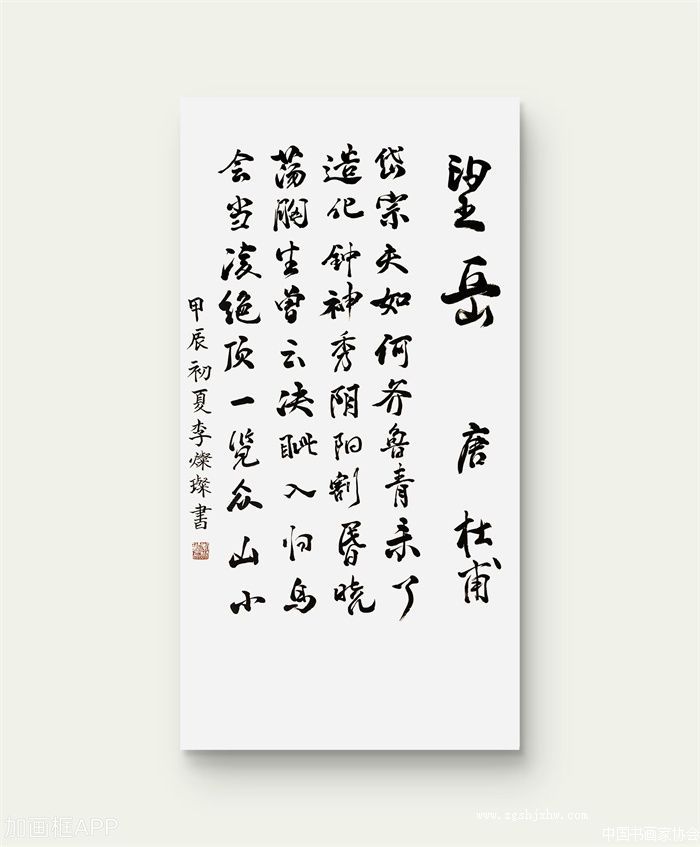 望岳 唐 杜甫
岱宗夫如何齐鲁青未了
造化钟神秀阴阳割昬晓
荡胸生曾云决眦入归鸟
会当凌绝顶一览众山小
甲辰初夏李燦璨書
加画框APP
www.zgshjxhw.com
中国书画家协会